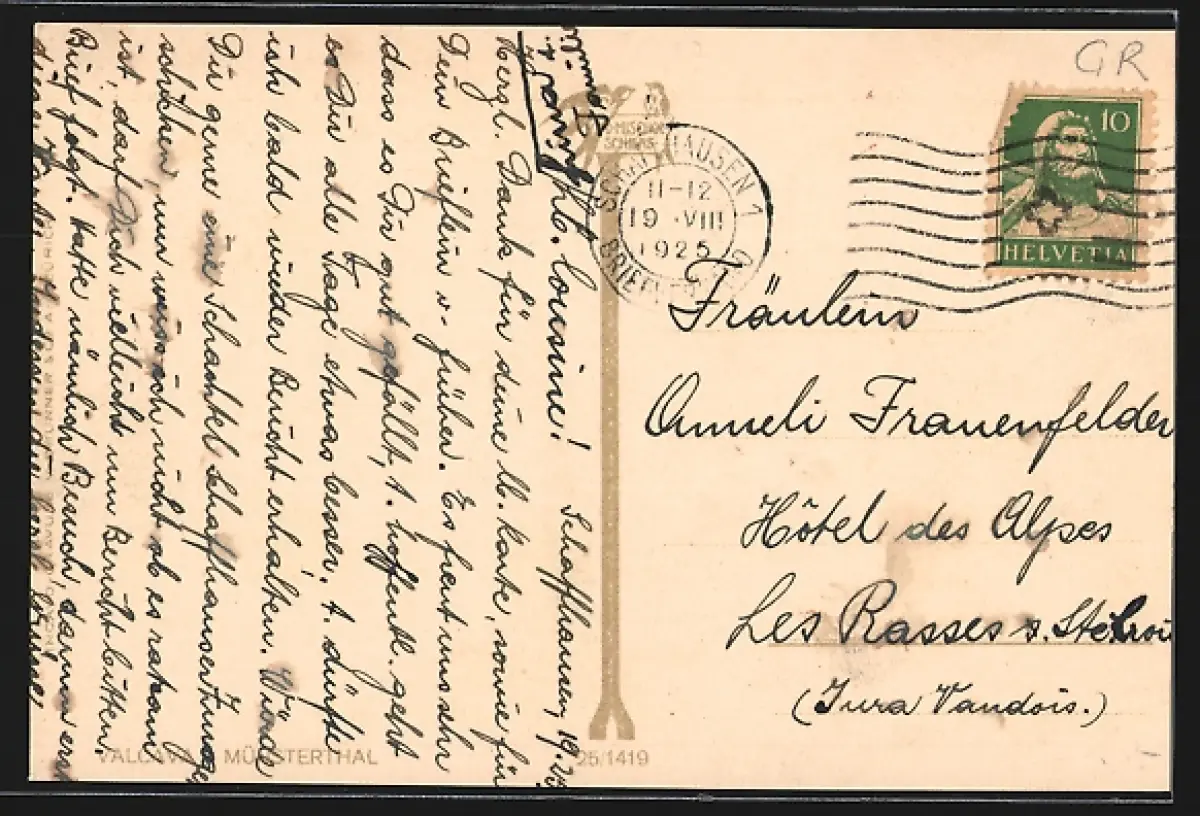 GR
10
HELVETIA
SCHAFFHAUSEN 1
11-12
19. VIII
1925
Fräulein
Anneli Frauenfelder
Hôtel des Alpes
Les Rasses s. Ste Croix
(Jura Vaudois.)
Schaffhausen, 19.
Lb. Cousine!
Herzl. Dank für deine lb. Karte, sowie für
Dein Brieflein v. früher. Es freut uns sehr
dass es Dir gut gefällt, hoffentl. geht
es Dir alle Tage etwas besser.
ich bald wieder Bericht erhalten. Würde
Dir gerne eine Schachtel Schaffhauserzungen
schicken, nun weiss ich nicht ob es ratsam
ist, darf Dich vielleicht um Bericht bitten.
Brief folgt. Hatte nämlich Besuch, darum erst
VALCAVA MÜNSTERTHAL
25/1419